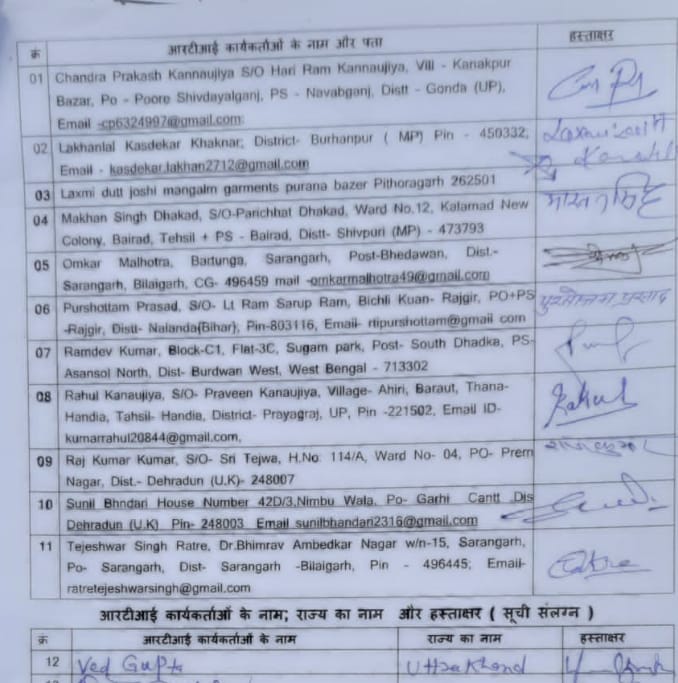 क्रं आरटीआई कार्यकर्ताओं के नाम और पता हस्ताक्षर
01 Chandra Prakash Kannaujiya S/O Hari Ram Kannaujiya, Vill - Kanakpur
Bazar, Po - Poore Shivdayalganj, PS - Navabganj, Distt - Gonda (UP),
Email -cp6324997@gmail.com
02 Lakhanlal Kasdekar Khaknar, District- Burhanpur ( MP) Pin - 450332;
Email - kasdekar.lakhan2712@gmail.com
03 Laxmi dutt joshi mangalm garments purana bazer Pithoragarh 262501
04 Makhan Singh Dhakad, S/O-Parichhat Dhakad, Ward No.12, Kalamad New
Colony, Bairad, Tehsil + PS - Bairad, Distt- Shivpuri (MP) - 473793
05 Omkar Malhotra, Bartunga, Sarangarh, Post-Bhedawan, Dist.-
Sarangarh, Bilaigarh, CG- 496459 mail -omkarmalhotra49@gmail.com
06 Purshottam Prasad, S/O- Lt Ram Sarup Ram, Bichli Kuan- Rajgir, PO+PS
-Rajgir, Distt- Nalanda{Bihar}; Pin-803116, Email- rtipurshottam@gmail com
पुरुषोत्तम प्रसाद
07 Ramdev Kumar, Block-C1, Flat-3C, Sugam park, Post- South Dhadka, PS-
Asansol North, Dist- Burdwan West, West Bengal - 713302
08 Rahul Kanaujiya, S/O- Praveen Kanaujiya, Village- Ahiri, Baraut, Thana-
Handia, Tahsil- Handia, District- Prayagraj, UP, Pin -221502, Email ID-
kumarrahul20844@gmail.com,
Rahul
09 Raj Kumar Kumar, S/O- Sri Tejwa, H.No 114/A, Ward No- 04, PO- Prem
Nagar, Dist.- Dehradun (U.K)- 248007
राजकुमार
10 Sunil Bhndari House Number 42D/3,Nimbu Wala, Po- Garhi Cantt Dis
Dehradun (U.K) Pin- 248003 Email sunilbhandari2316@gmail.com
11 Tejeshwar Singh Ratre, Dr.Bhimrav Ambedkar Nagar w/n-15, Sarangarh,
Po- Sarangarh, Dist- Sarangarh -Bilaigarh, Pin - 496445; Email-
ratretejeshwarsingh@gmail.com
आरटीआई कार्यकर्ताओं के नाम; राज्य का नाम और हस्ताक्षर ( सूची संलग्न )
क्रं आरटीआई कार्यकर्ताओं के नाम राज्य का नाम हस्ताक्षर
12 Ved Gupta Uttrakhand